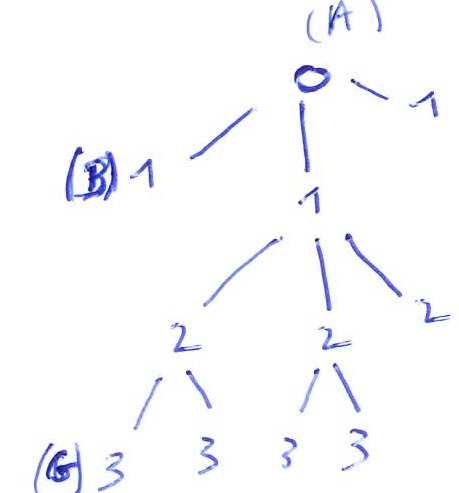 (A)
0 1
(B) 1
1
2 2 2
(G) 3 3 3 3